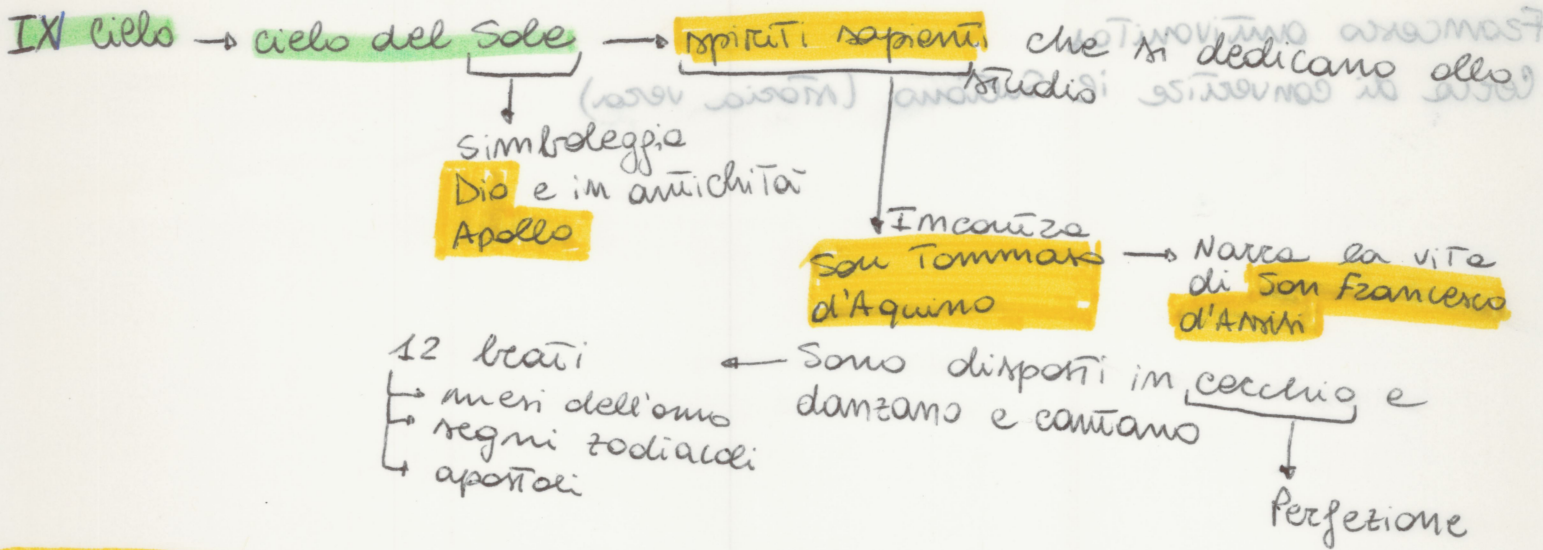 IX cielo → cielo del Sole → spiriti sapienti che si dedicano allo
studio
simboleggia
Dio e in antichità
Apollo
Incontra
San Tommaso
d'Aquino
→ Narra la vita
di San Francesco
d'Assisi
12 beati ← Sono disposti in cerchio e
danzano e cantano
→ mesi dell'anno
→ segni zodiacali
→ apostoli
Perfezione
Francesco
cerca di convertire il (storia vera)